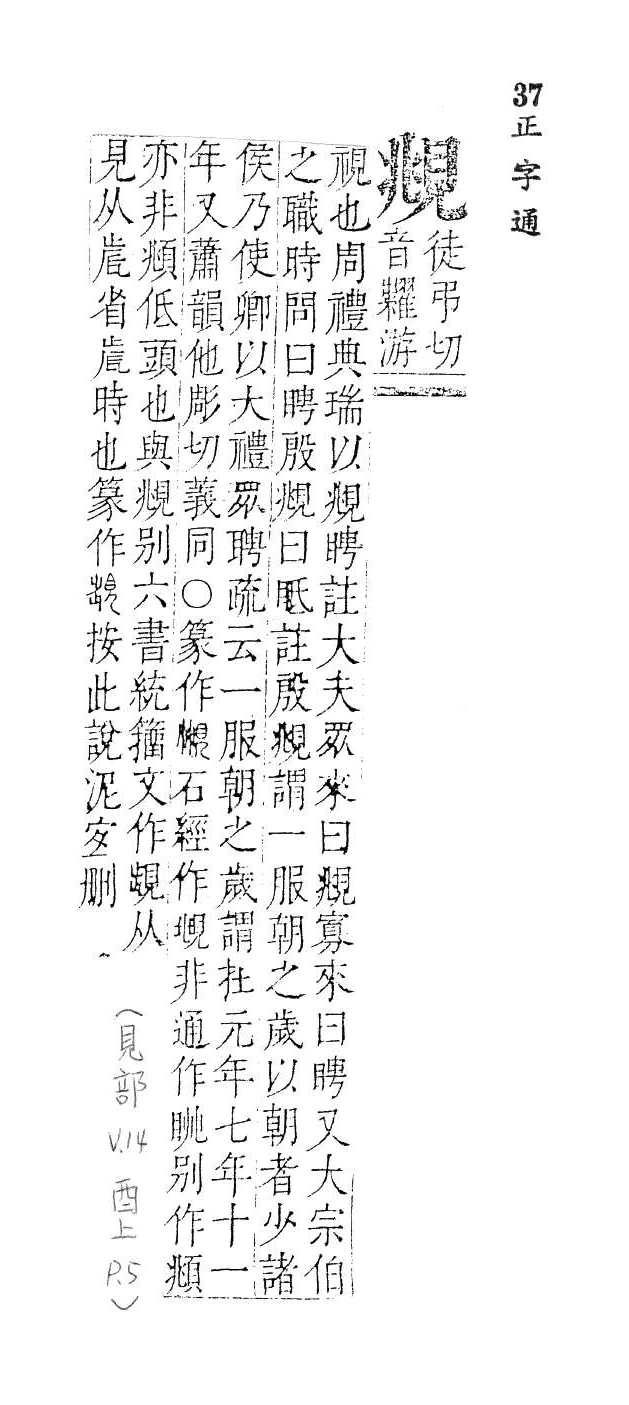 37
正字通
覜
徒弔切
音糶游
視也周禮典瑞以覜聘註大夫眾來曰覜寡來曰聘又大宗伯
之職時問曰聘殷覜曰眂註殷覜謂一服朝之歲以朝者少諸
侯乃使卿以大禮眾聘疏云一服朝之歲謂在元年七年十一
年又蕭韻他彫切義同○篆作石經作非通作眺別作頫
亦非頫低頭也與覜別六書統籀文作从
見从省時也篆作按此說泥宜刪
(見部
V.14
酉上
P.5)